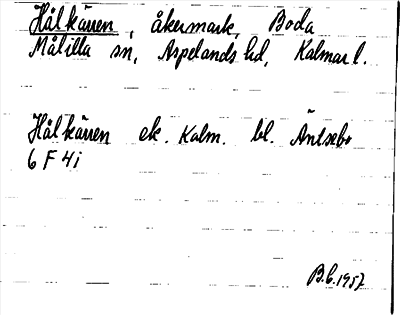 Hålkärren, åkermark, Boda
Målilla sn, Aspelands hd, Kalmar l.
Hålkärren ek. Kalm. bl. Äntsebo
6 F 4i
B.G. 1957